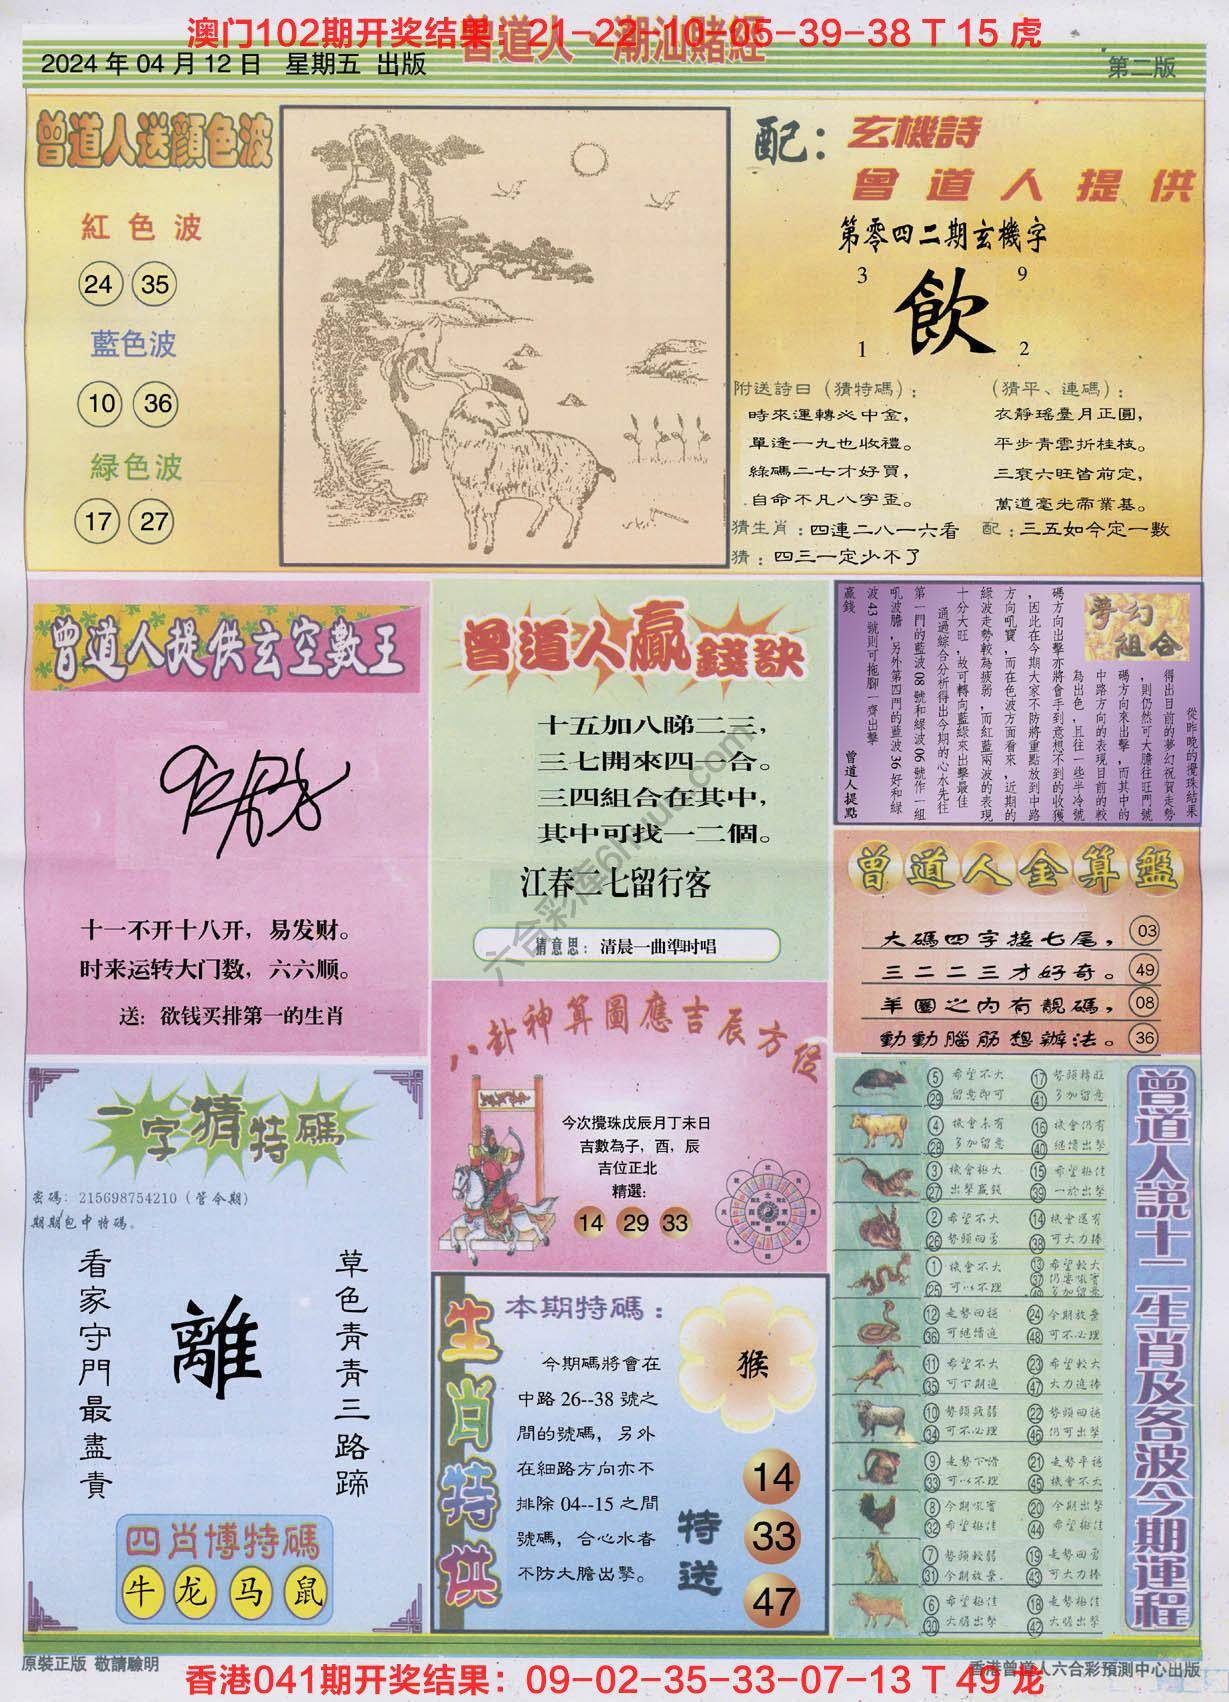 澳门102期开奖结果：21-22-10-05-39-38 T 15 虎
曾道人·潮汕賭經
2024 年 04 月 12 日 星期五 出版
第二版
曾道人送顏色波
紅色波
24 35
藍色波
10 36
緑色波
17 27
配：玄機詩
曾道人提供
第零四二期玄機字
3 9
飲
1 2
附送詩曰（猜特碼）：
時來運轉必中金，
單逢一九也收禮。
綠碼二七才好買，
自命不凡八字歪。
（猜平、連碼）：
衣靜瑶臺月正圓，
平步青雲折桂枝。
三衰六旺皆前定，
萬道毫光帝業基。
猜生肖：四連二八一六看
配：三五如今定一數
猜：四三一定少不了
曾道人提供玄空數王
十一不开十八开，易发财。
时来运转大门数，六六顺。
送：欲钱买排第一的生肖
曾道人贏錢訣
十五加八睇二三，
三七開來四一合。
三四組合在其中，
其中可找一二個。
江春二七留行客
猜意思：清晨一曲準时唱
夢幻組合
從昨晚的攪珠結果
得出目前的夢幻祝賀走勢
，則仍然可大膽往旺門號
碼方向來出擊，而其中的
中路方向的表現目前的較
為出色，且往一些半冷號
碼方向出擊亦將會手到意想不到的收獲
，因此在今期大家不防將重點放到中路
方向吼寶，而在色波方面看來，近期的
綠波走勢較為疲弱，而紅藍兩波的表現
十分大旺，故可轉向藍綠來出擊最佳
通過綜合分析得出今期的心水先往
第一門的藍波 08 號和綠波 06 號作一組
吼波膽，另外第四門的藍波 36 好和綠
波 43 號則可拖腳一齊出擊
贏錢
曾道人提點
曾道人金算盤
大碼四字接七尾，03
三二二三才好奇。49
羊圈之內有靚碼，08
動動腦筋想辦法。36
八卦神算圖應吉辰方位
今次攪珠戊辰月丁未日
吉數為子，酉，辰
吉位正北
精選：
14 29 33
一字猜特碼
密碼：215698754210（管今期）
期期包中特碼。
草色青青三路蹄
離
看家守門最盡責
四肖博特碼
牛 龙 马 鼠
生肖特供
本期特碼：
今期碼將會在
中路 26--38 號之
間的號碼，另外
在細路方向亦不
排除 04--15 之間
號碼，合心水者
不防大膽出擊。
猴
特送
14
33
47
曾道人説十二生肖及各波今期運程
5 希望不大 17 勢頭轉旺
29 留意即可 41 多加留意
4 機會未有 16 機會仍有
28 多加留意 40 繼續出擊
3 機會極大 15 希望極佳
27 出擊贏錢 39 一於出擊
2 希望不大 14 機會還有
26 勢頭回勇 38 可大力捧
1 機會不大 13 希望較大
25 可以不理 37
12 走勢回穩 24 今期放棄
36 可繼續追 48 可不必理
11 希望不大 23 希望較大
35 可下期追 47 大力追捧
10 勢頭疲弱 22 勢頭回穩
34 可不必理 46 仍可出擊
9 走勢下滑 21 走勢平穩
33 可以不理 45 機會不大
8 今期吼寶 20 今期出擊
32 希望極佳 44 希望極佳
7 勢頭較弱 19 走勢回勇
31 今期放棄. 43 可大力捧
6 希望極佳 18 走勢極佳
30 大膽出擊 42 大膽出擊
原裝正版 敬請驗明
香港曾道人六合彩預測中心出版
香港041期开奖结果：09-02-35-33-07-13 T 49 龙